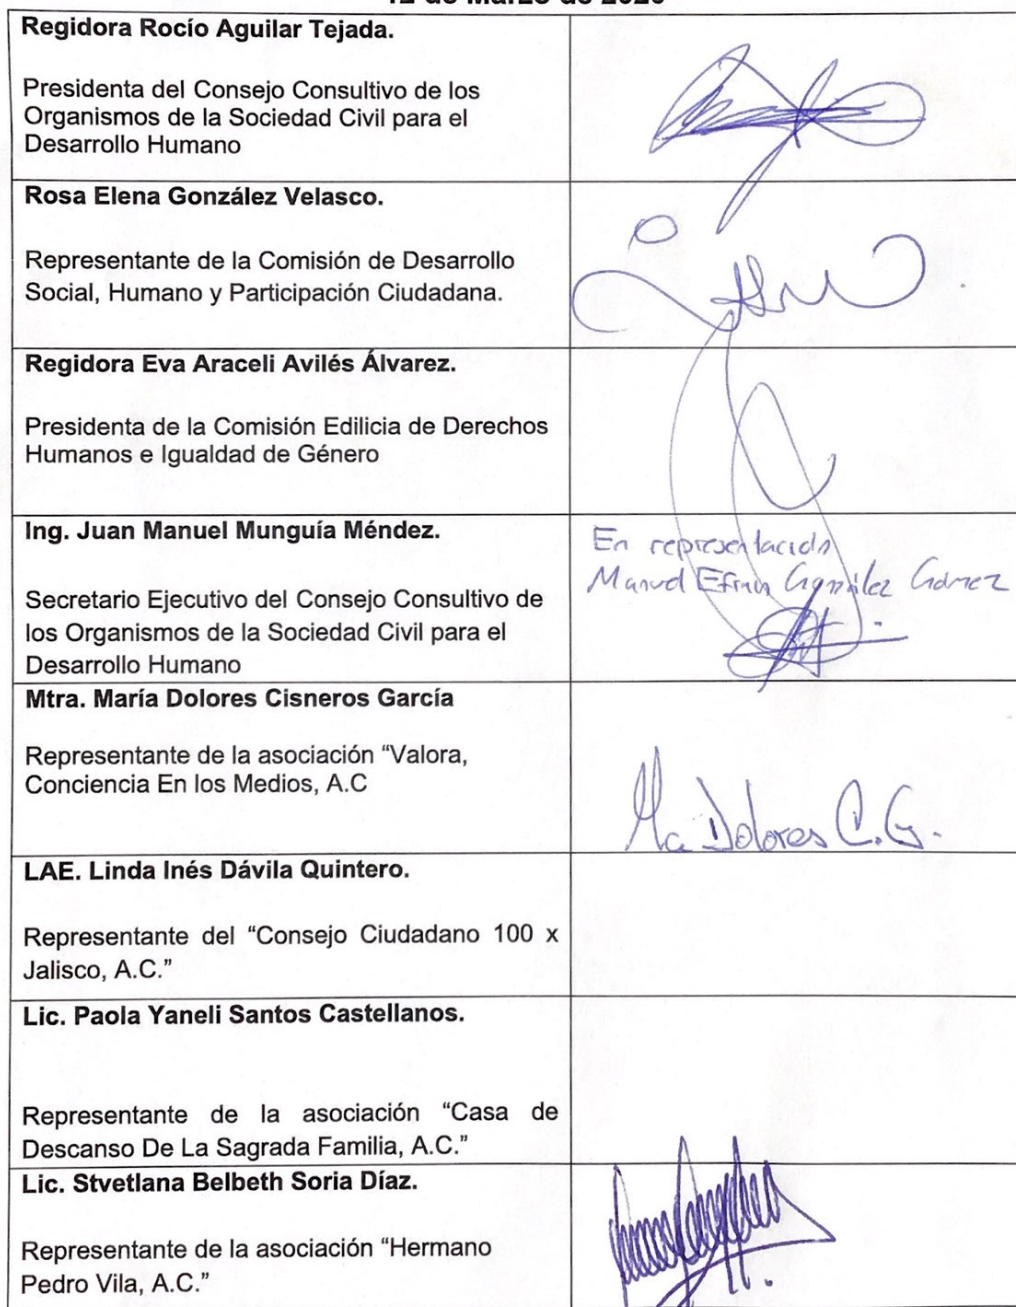 12 de Marzo de 2020
Regidora Rocío Aguilar Tejada.
Presidenta del Consejo Consultivo de los
Organismos de la Sociedad Civil para el
Desarrollo Humano
Rosa Elena González Velasco.
Representante de la Comisión de Desarrollo
Social, Humano y Participación Ciudadana.
Regidora Eva Araceli Avilés Álvarez.
Presidenta de la Comisión Edilicia de Derechos
Humanos e Igualdad de Género
Ing. Juan Manuel Munguía Méndez.
Secretario Ejecutivo del Consejo Consultivo de
los Organismos de la Sociedad Civil para el
Desarrollo Humano
En representación
Manuel Efraín González Gómez
Mtra. María Dolores Cisneros García
Representante de la asociación “Valora,
Conciencia En los Medios, A.C
Ma Dolores C.G.
LAE. Linda Inés Dávila Quintero.
Representante del “Consejo Ciudadano 100 x
Jalisco, A.C.”
Lic. Paola Yaneli Santos Castellanos.
Representante de la asociación “Casa de
Descanso De La Sagrada Familia, A.C.”
Lic. Stvetlana Belbeth Soria Díaz.
Representante de la asociación “Hermano
Pedro Vila, A.C.”